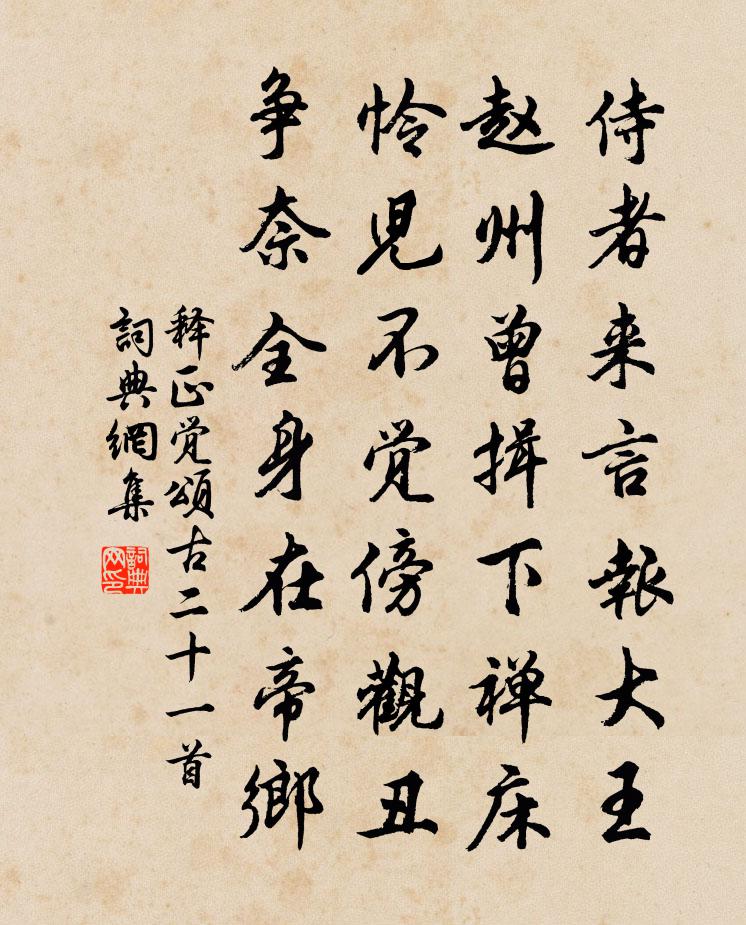 侍者来言報大王
赵州曾揖下禅床
怜児不觉傍觀丑
争奈全身在帝鄉
释正觉頌古二十一首
詞典網集
詞典网印